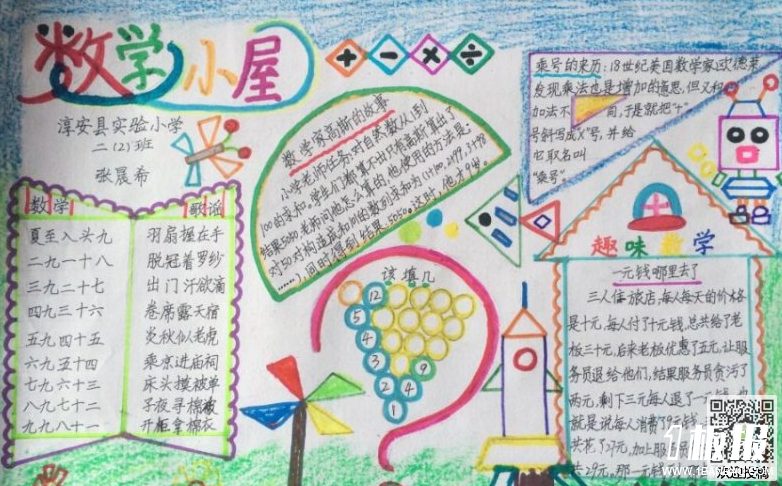 数学小屋
淳安县实验小学
二(2)班
张晨希
+ - × ÷
数学 歌谣
夏至入头九 羽扇握在手
二九一十八 脱冠着罗纱
三九二十七 出门汗欲滴
四九三十六 卷席露天宿
五九四十五 炎秋似老虎
六九五十四 乘凉进庙祠
七九六十三 床头摸被单
八九七十二 子夜寻棉被
九九八十一 开柜拿棉衣
数学家高斯的故事
小学老师任务:对自然数从1到
100的求和,学生们都算不出只有高斯算出了
结果5050,老师问他怎么算的,他使用的方法是:
对50对构造成和101的数列求和为(1+100,2+99,3+98
……),同时得到结果:5050。这时,他才9岁。
乘号的来历:18世纪美国数学家欧德莱
发现乘法也是增加的意思,但又和
加法不 同,于是就把"+"
号斜写成"X"号,并给
它取名叫
"乘号"
该填几
12
5
4 4
3 9
2 4
1
趣味数学
一元钱哪里去了
三人住旅店,每人每天的价格
是十元,每人付了十元钱,总共给了老
板三十元,后来老板优惠了五元,让服
务员退给他们,结果服务员贪污了
两元,剩下三元每人退了一
就是说每人消费了9元钱
共花了27元,加上服
共29元。那一元钱